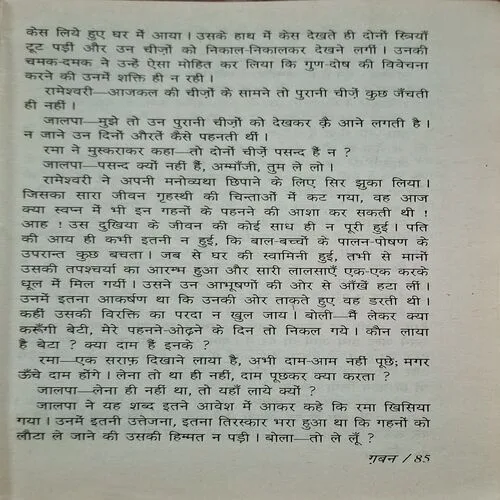 केस लिये हुए घर में आया। उसके हाथ में केस देखते ही दोनों स्त्रियाँ
टूट पड़ीं और उन चीज़ों को निकाल-निकालकर देखने लगीं। उनकी
चमक-दमक ने उन्हे ऐसा मोहित कर लिया कि गुण-दोष की विवेचना
करने की उनमें शक्ति ही न रही।
रामेश्वरी—आजकल की चीज़ों के सामने तो पुरानी चीज़ें कुछ जँचती
ही नहीं।
जालपा—मुझे तो उन पुरानी चीज़ों को देखकर क़ै आने लगती है।
न जाने उन दिनों औरतें कैसे पहनती थीं।
रमा ने मुस्कराकर कहा—तो दोनों चीज़ें पसन्द हैं न ?
जालपा—पसन्द क्यों नहीं हैं, अम्माँजी, तुम ले लो।
रामेश्वरी ने अपनी मनोव्यथा छिपाने के लिए सिर झुका लिया।
जिसका सारा जीवन गृहस्थी की चिन्ताओं में कट गया, वह आज
क्या स्वप्न में भी इन गहनों के पहनने की आशा कर सकती थी !
आह ! उस दुखिया के जीवन की कोई साध ही न पूरी हुई। पति
की आय ही कभी इतनी न हुई, कि बाल-बच्चों के पालन-पोषण के
उपरान्त कुछ बचता। जब से घर की स्वामिनी हुई, तभी से मानों
उसकी तपश्चर्या का आरम्भ हुआ और सारी लालसाएँ एक-एक करके
धूल में मिल गयीं। उसने उन आभूषणों की ओर से आँखें हटा लीं।
उनमें इतना आकर्षण था कि उनकी ओर ताकते हुए वह डरती थी।
कहीं उसकी विरक्ति का परदा न खुल जाय। बोली—मैं लेकर क्या
करूँगी बेटी, मेरे पहनने-ओढ़ने के दिन तो निकल गये। कौन लाया
है बेटा ? क्या दाम हैं इनके ?
रमा—एक सराफ़ दिखाने लाया है, अभी दाम-आम नहीं पूछे; मगर
ऊँचे दाम होंगे। लेना तो था ही नहीं, दाम पूछकर क्या करता ?
जालपा—लेना ही नहीं था, तो यहाँ लाये क्यों ?
जालपा ने यह शब्द इतने आवेश में आकर कहे कि रमा खिसिया
गया। उनमें इतनी उत्तेजना, इतना तिरस्कार भरा हुआ था कि गहनों को
लौटा ले जाने की उसकी हिम्मत न पड़ी। बोला—तो ले लूँ ?
ग़बन / 85